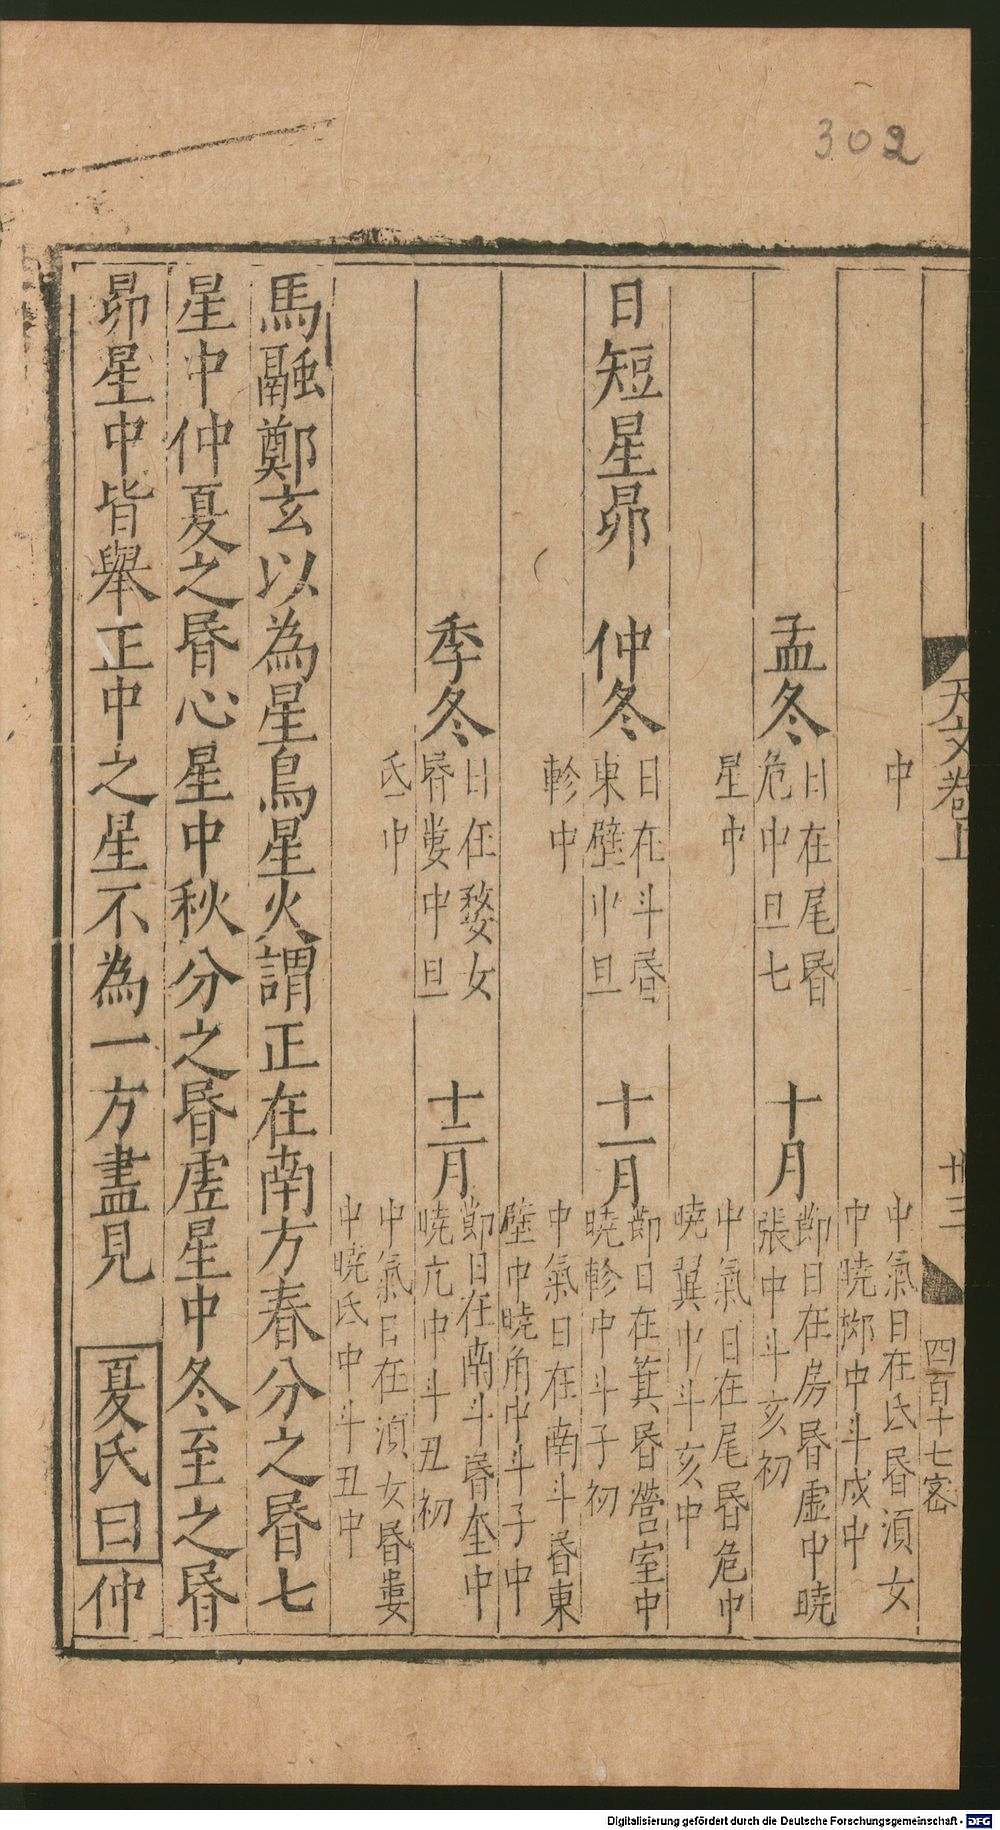 302
天文卷上
卅三
四百十七客
中
中氣日在氐昏湏女
中曉𭅺中斗戌中
孟冬
日在尾昏
危中旦七
星中
十月
節日在房昏虛中曉
張中斗亥初
中氣日在尾昏危中
曉翼中斗亥中
日短星昴
仲冬
日在斗昏
東壁中旦
軫中
十一月
節日在箕昏營室中
曉軫中斗子初
中氣日在南斗昏東
壁中曉角中斗子中
季冬
日在婺女
昏婁中旦
氐中
十二月
節日在南斗昏奎中
曉亢中斗丑初
中氣日在湏女昏婁
中曉氐中斗丑中
馬融鄭玄以為星鳥星火謂正在南方春分之昏七
星中仲夏之昏心星中秋分之昏虛星中冬至之昏
昴星中皆舉正中之星不為一方盡見 夏氏曰仲
Digitalisierung gefördert durch die Deutsche Forschungsgemeinschaft - DFG